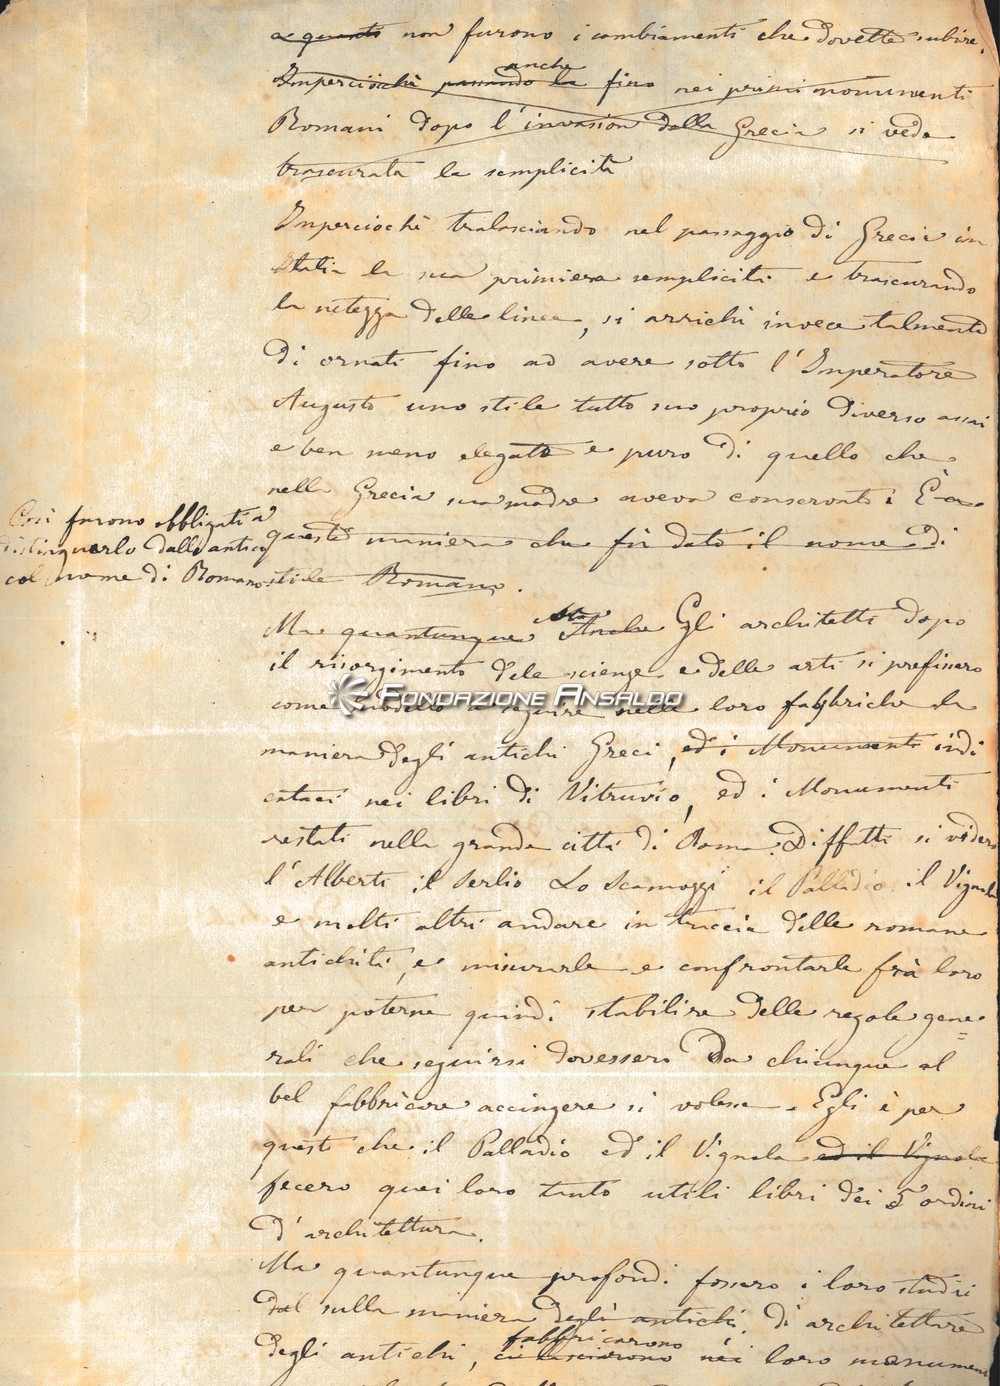 a quanti non furono i cambiamenti che dovette subire.
anche
Imperciochè passando la fino nei primi monumenti
Romani dopo l'invasion della Grecia si vede
trascurata la semplicità
Imperciochè tralasciando nel passaggio di Grecia in
Italia la sua primiera semplicità e trascurando
la netezza delle linee, si arrichì invece talmente
di ornati fino ad avere sotto l'Imperatore
Augusto uno stile tutto suo proprio diverso assai
e ben meno elegante e puro di quello che
nella Grecia sua madre aveva conservato. È a
questa maniera che fù dato il nome di
stile Romano.
Così furono obbligati a
distinguerlo dall'antico
col nome di Romano.
Ma quantunque Anche Gli architetti dopo
il risorgimento dele scienze e delle arti si prefisero
come modello a seguire nelle loro fabbriche la
maniera degli antichi Greci, ed i Monumenti indi
cataci nei libri di Vitruvio, ed i Monumenti
restati nella grande città di Roma. Diffatti si videro
l'Alberti il Serlio Lo Scamozzi il Palladio il Vignola
e molti altri andare in traccia delle romane
antichità, e misurarle e confrontarle frà loro
per poterne quindi stabilire delle regole gene=
rali che seguirsi dovessero Da chiunque al
bel fabbricare accingere si volesse. Egli è per
questo che il Palladio ed il Vignola ed il Vignola
fecero quei loro tanto utili libri dei 5 ordini
d'architettura.
Ma quantunque profondi fossero i loro studi
dal sulla maniera degli antichi. di architettare
fabbricarono
degli antichi, ci lasciarono nei loro monumen
FONDAZIONE ANSALDO